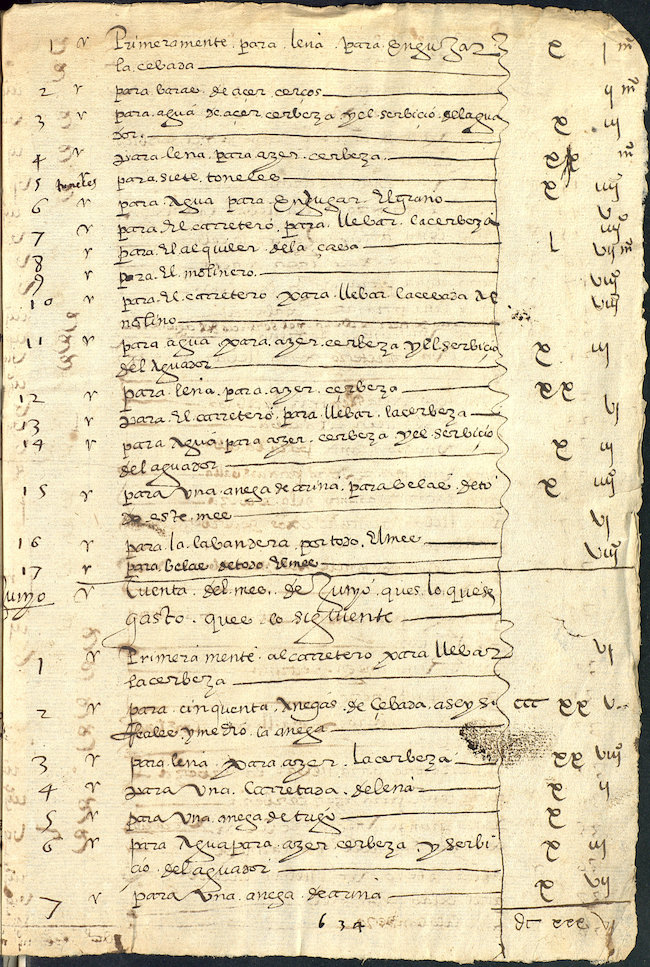 1 Primeramente para leña para engugar x i mº
la cebada
2 para barae de açer cercos ii mº
3 para agua de açer cerbeza y el serbiçio del agua x iii
dor
4 para leña para azer cerbeza xx mº
5 toneles para siete toneles x iiiiº
6 para Agua para Engugar El grano v
7 para El carretero para llebar la cerbeza iiiiº
8 para El alquiler de la caba l vii mº
9 para El molinero viiiº
10 para El carretero para llebar la cebada Al viiiº
molino
11 para agua para azer cerbeza y El serbicio x iii
del Aguador
12 para leña para azer cerbeza xx
13 para El carretero para llebar la cerbeza vi
14 para Agua para azer cerbeza y el serbicio x iii
del aguador
15 para una anega de arina para belae de to x iiiiº
do este mee vi
16 para la labandera por todo El mee viiiº
17 para belae de todo El mee
Junyo Cuenta del mee de Junyo ques lo que se
gasto quee lo siguiente
1 Primera mente al carretero para llebar vi
la cerbeza
2 para cinquenta Anegas de cebada a seys ccc xx v
Realee y medio la anega
3 para leña para azer la cerbeza xx viiiº
4 para una carretada de leña x ii
5 para una anega de trigo x
6 para Agua para azer cerbeza y serbi x iii
cio del aguador
7 para una anega de arina x vii
634 dc xxx vi